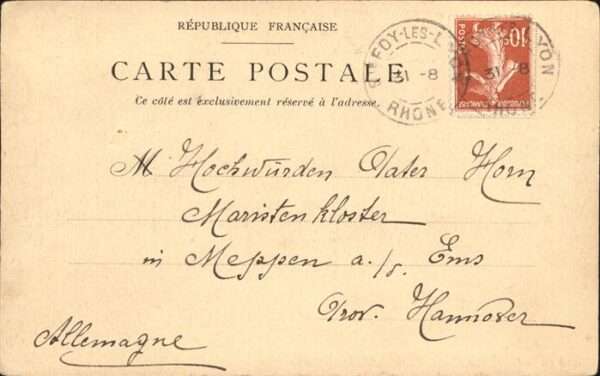 RÉPUBLIQUE FRANÇAISE
CARTE POSTALE
Ce côté est exclusivement réservé à l'adresse.
STE FOY-LES-L
31 -8
RHÔNE
LYON
31 -8
10c
POSTES
M Hochwürden Pater Horn
Maristenkloster
in Meppen a./s. Ems
Prov. Hannover
Allemagne